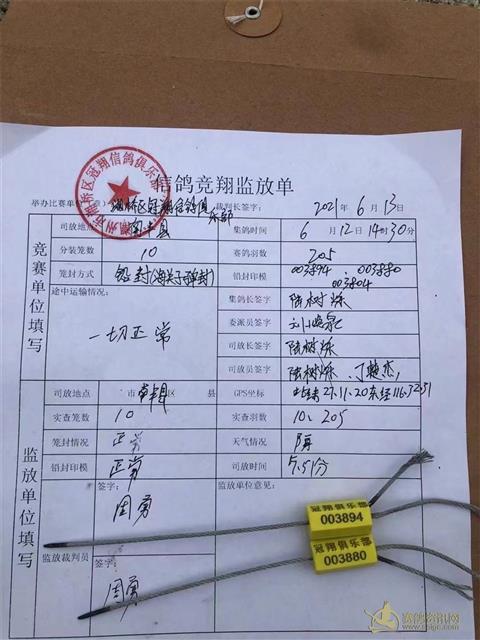 潮州湘桥区冠翔信鸽俱乐部
信鸽竞翔监放单
举办比赛单位(章): 湘桥区冠翔信鸽俱乐部 裁判长签字: 2021年6月13日
竞赛单位填写
司放地点 南丰县 集鸽时间 6月12日14时30分
分装笼数 10 赛鸽羽数 205
笼封方式 铅封(海关子弹封) 铅封印模 003894、003880 003804
途中运输情况: 一切正常
集鸽长签字 陆树烁
委派员签字
司放长签字 陆树烁
司放员签字 陆树烁、
监放单位填写
司放地点 市 区 县 GPS坐标 北纬27.11.20东经116.32.51
实查笼数 10 实查羽数 10、205
笼封情况 正常 天气情况 阴
铅封印模 正常 司放时间 5.51分
签字: 周勇 监放单位意见:
监放裁判员 签字: 周勇
冠翔俱乐部
003894
冠翔俱乐部
003880
赛鸽资讯网